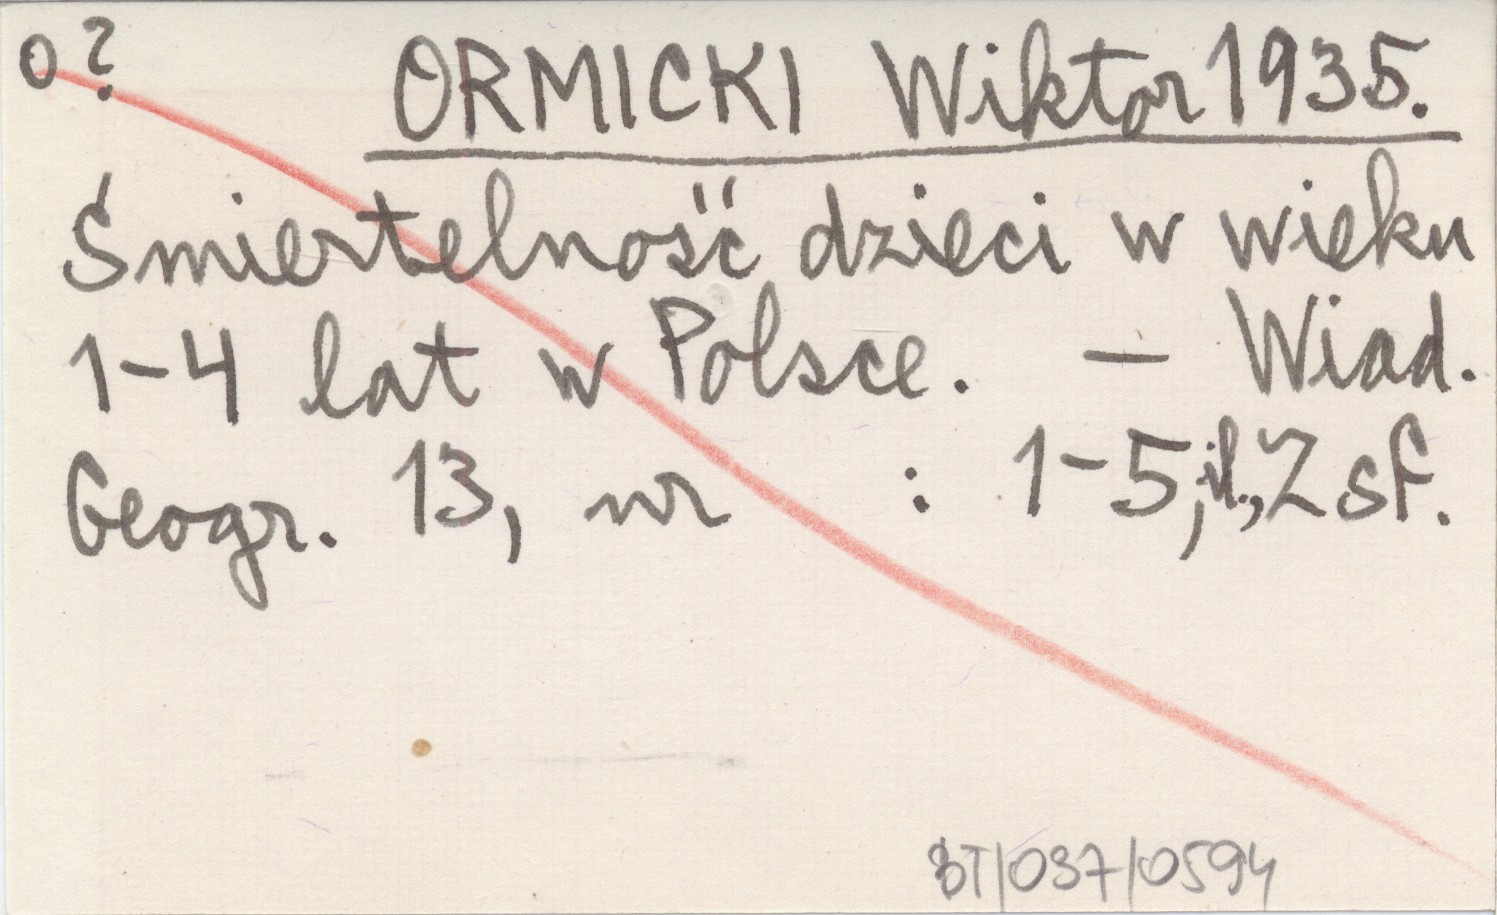 o?
ORMICKI Wiktor 1935.
Śmiertelność dzieci w wieku
1-4 lat w Polsce. — Wiad.
Geogr. 13, nr : 1-5, il., Z sf.
BT/037/0594